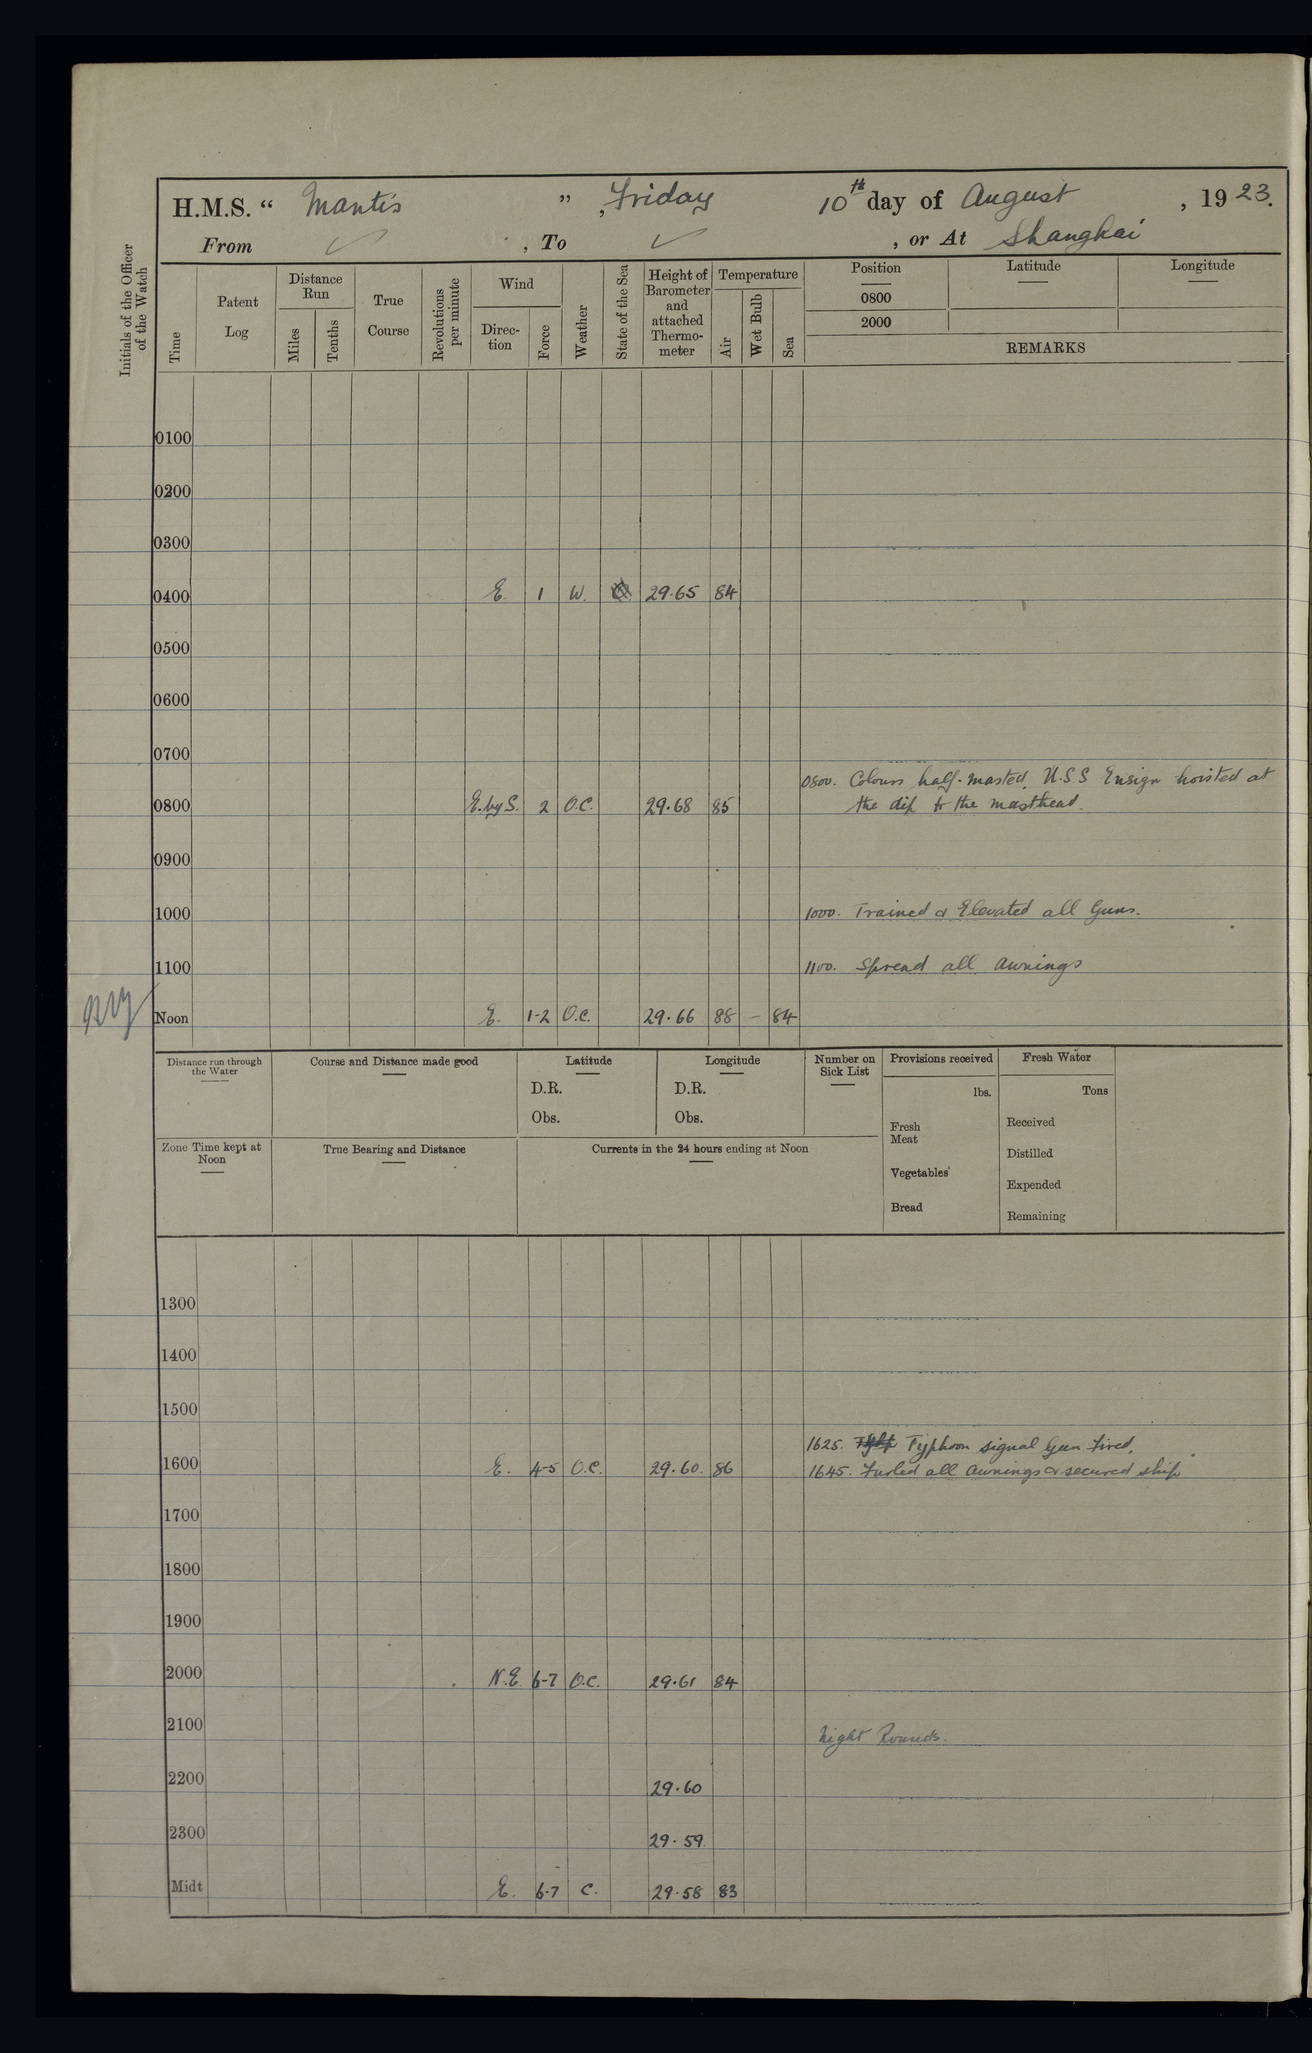 H.M.S. “ Mantis ” , Friday 10th day of August , 1923.
From ✓ , To ✓ , or At Shanghai
Initials of the Officer of the Watch
Time
Patent Log
Distance Run
Miles
Tenths
True Course
Revolutions per minute
Wind
Direc-tion
Force
Weather
State of the Sea
Height of Barometer and attached Thermo-meter
Temperature
Air
Wet Bulb
Sea
Position
Latitude
Longitude
0800
2000
REMARKS
0100
0200
0300
0400 E. 1 W. 29.65 84
0500
0600
0700
0800. Colours half-masted, U.S.S Ensign hoisted at
0800 E. by S. 2 O.C. 29.68 85 the dip to the masthead.
0900
1000 1000. Trained & Elevated all Guns.
1100 1100. Spread all awnings
Noon E. 1-2 O.C. 29.66 88 – 84
Distance run through the Water
Course and Distance made good
Latitude
D.R.
Obs.
Longitude
D.R.
Obs.
Number on Sick List
Provisions received
lbs.
Fresh Meat
Vegetables
Bread
Fresh Water
Tons
Received
Distilled
Expended
Remaining
Zone Time kept at Noon
True Bearing and Distance
Currents in the 24 hours ending at Noon
1300
1400
1500
1625. Typhoon signal Gun fired.
1600 E. 4-5 O.C. 29.60. 86 1645. Furled all awnings & secured ship
1700
1800
1900
2000 N.E. 6-7 O.C. 29.61 84
2100 Night Rounds.
2200 29.60
2300 29.59
Midt E. 6-7 C. 29.58 83